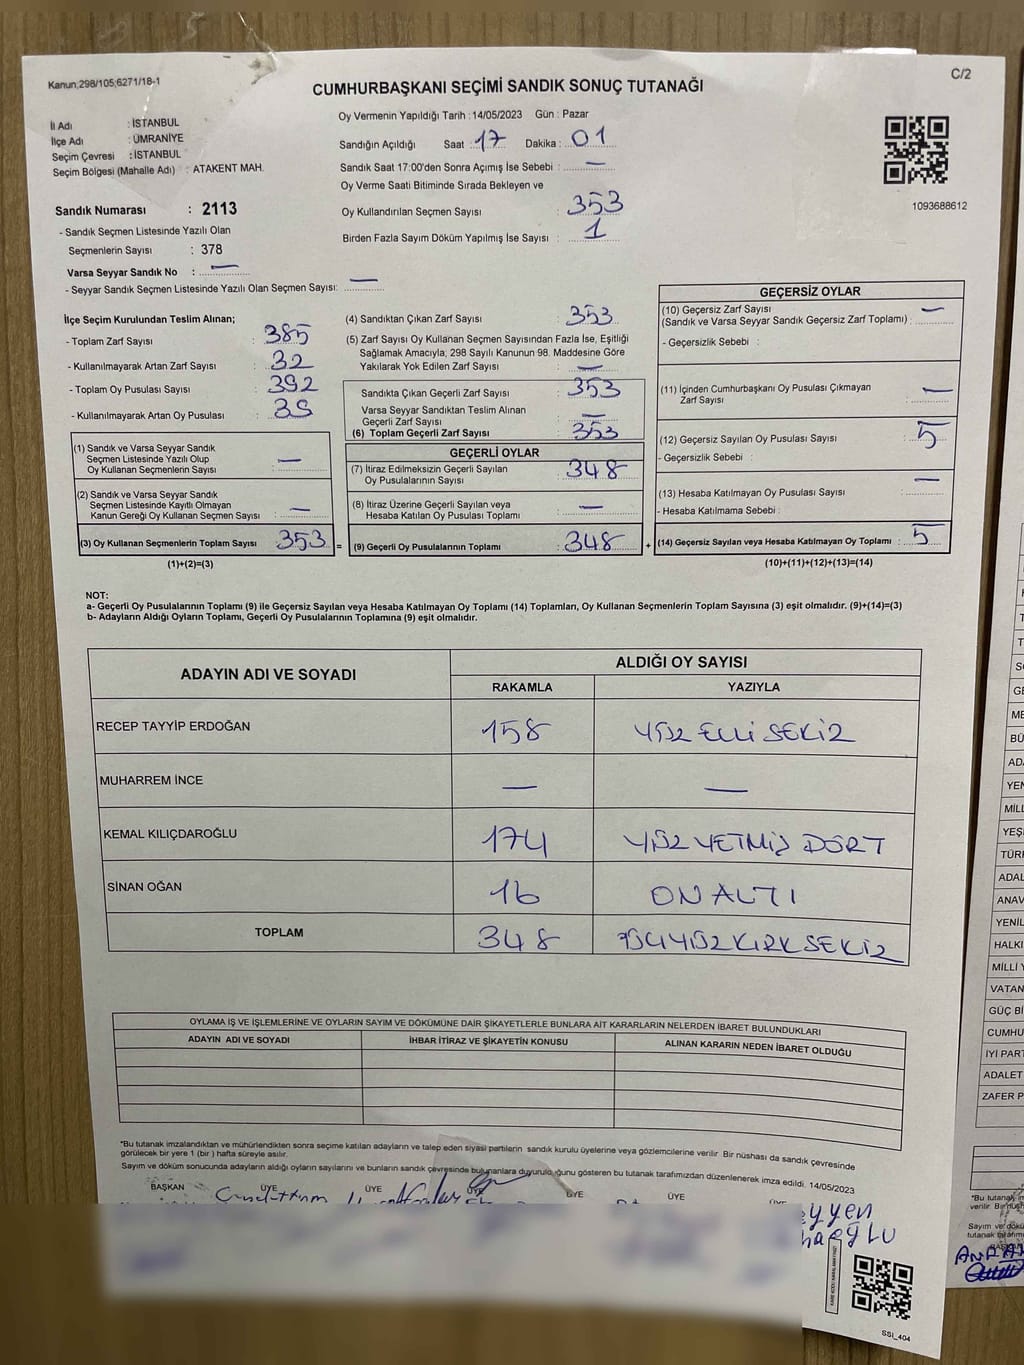 Kanun;298/105;6271/18-1
C/2
CUMHURBAŞKANI SEÇİMİ SANDIK SONUÇ TUTANAĞI
İl Adı : İSTANBUL
İlçe Adı : ÜMRANİYE
Seçim Çevresi : İSTANBUL
Seçim Bölgesi (Mahalle Adı) : ATAKENT MAH.
Oy Vermenin Yapıldığı Tarih : 14/05/2023 Gün : Pazar
Sandığın Açıldığı Saat 17 Dakika : 01
Sandık Saat 17:00'den Sonra Açımış İse Sebebi : —
Oy Verme Saati Bitiminde Sırada Bekleyen ve
Oy Kullandırılan Seçmen Sayısı : 353
Birden Fazla Sayım Döküm Yapılmış İse Sayısı : 1
1093688612
Sandık Numarası : 2113
- Sandık Seçmen Listesinde Yazılı Olan
Seçmenlerin Sayısı : 378
Varsa Seyyar Sandık No : —
- Seyyar Sandık Seçmen Listesinde Yazılı Olan Seçmen Sayısı: —
İlçe Seçim Kurulundan Teslim Alınan;
- Toplam Zarf Sayısı : 385
- Kullanılmayarak Artan Zarf Sayısı : 32
- Toplam Oy Pusulası Sayısı : 392
- Kullanılmayarak Artan Oy Pusulası : 39
(1) Sandık ve Varsa Seyyar Sandık
Seçmen Listesinde Yazılı Olup
Oy Kullanan Seçmenlerin Sayısı : —
(2) Sandık ve Varsa Seyyar Sandık
Seçmen Listesinde Kayıtlı Olmayan
Kanun Gereği Oy Kullanan Seçmen Sayısı : —
(3) Oy Kullanan Seçmenlerin Toplam Sayısı 353 =
(1)+(2)=(3)
(4) Sandıktan Çıkan Zarf Sayısı : 353
(5) Zarf Sayısı Oy Kullanan Seçmen Sayısından Fazla İse, Eşitliği
Sağlamak Amacıyla; 298 Sayılı Kanunun 98. Maddesine Göre
Yakılarak Yok Edilen Zarf Sayısı : —
Sandıkta Çıkan Geçerli Zarf Sayısı : 353
Varsa Seyyar Sandıktan Teslim Alınan
Geçerli Zarf Sayısı : —
(6) Toplam Geçerli Zarf Sayısı : 353
GEÇERLİ OYLAR
(7) İtiraz Edilmeksizin Geçerli Sayılan
Oy Pusulalarının Sayısı : 348
(8) İtiraz Üzerine Geçerli Sayılan veya
Hesaba Katılan Oy Pusulası Toplamı : —
(9) Geçerli Oy Pusulalarının Toplamı : 348 +
GEÇERSİZ OYLAR
(10) Geçersiz Zarf Sayısı
(Sandık ve Varsa Seyyar Sandık Geçersiz Zarf Toplamı) : —
- Geçersizlik Sebebi :
(11) İçinden Cumhurbaşkanı Oy Pusulası Çıkmayan
Zarf Sayısı : —
(12) Geçersiz Sayılan Oy Pusulası Sayısı : 5
- Geçersizlik Sebebi :
(13) Hesaba Katılmayan Oy Pusulası Sayısı : —
- Hesaba Katılmama Sebebi :
(14) Geçersiz Sayılan veya Hesaba Katılmayan Oy Toplamı : 5
(10)+(11)+(12)+(13)=(14)
NOT:
a- Geçerli Oy Pusulalarının Toplamı (9) ile Geçersiz Sayılan veya Hesaba Katılmayan Oy Toplamı (14) Toplamları, Oy Kullanan Seçmenlerin Toplam Sayısına (3) eşit olmalıdır. (9)+(14)=(3)
b- Adayların Aldığı Oyların Toplamı, Geçerli Oy Pusulalarının Toplamına (9) eşit olmalıdır.
ADAYIN ADI VE SOYADI ALDIĞI OY SAYISI
RAKAMLA YAZIYLA
RECEP TAYYİP ERDOĞAN 158 YÜZ ELLİ SEKİZ
MUHARREM İNCE — —
KEMAL KILIÇDAROĞLU 174 YÜZ YETMİŞ DÖRT
SİNAN OĞAN 16 ON ALTI
TOPLAM 348 ÜÇ YÜZ KIRK SEKİZ
OYLAMA İŞ VE İŞLEMLERİNE VE OYLARIN SAYIM VE DÖKÜMÜNE DAİR ŞİKAYETLERLE BUNLARA AİT KARARLARIN NELERDEN İBARET BULUNDUKLARI
ADAYIN ADI VE SOYADI İHBAR İTİRAZ VE ŞİKAYETİN KONUSU ALINAN KARARIN NEDEN İBARET OLDUĞU
*Bu tutanak imzalandıktan ve mühürlendikten sonra seçime katılan adayların ve talep eden siyasi partilerin sandık kurulu üyelerine veya gözlemcilerine verilir. Bir nüshası da sandık çevresinde
görülecek bir yere 1 (bir) hafta süreyle asılır.
Sayım ve döküm sonucunda adayların aldığı oyların sayılarını ve bunların sandık çevresinde bulunanlara duyurulduğunu gösteren bu tutanak tarafımızdan düzenlenerek imza edildi. 14/05/2023
BAŞKAN ÜYE ÜYE ÜYE ÜYE ÜYE
SSİ_404
YEŞİ
TÜRK
ADAL
ANAV
YENİL
HALKI
MİLLİ Y
VATAN
GÜÇ Bİ
CUMHU
İYİ PART
ADALET
ZAFER P
*Bu tutanak
verilir. Bir nüsh
Sayım ve dökü